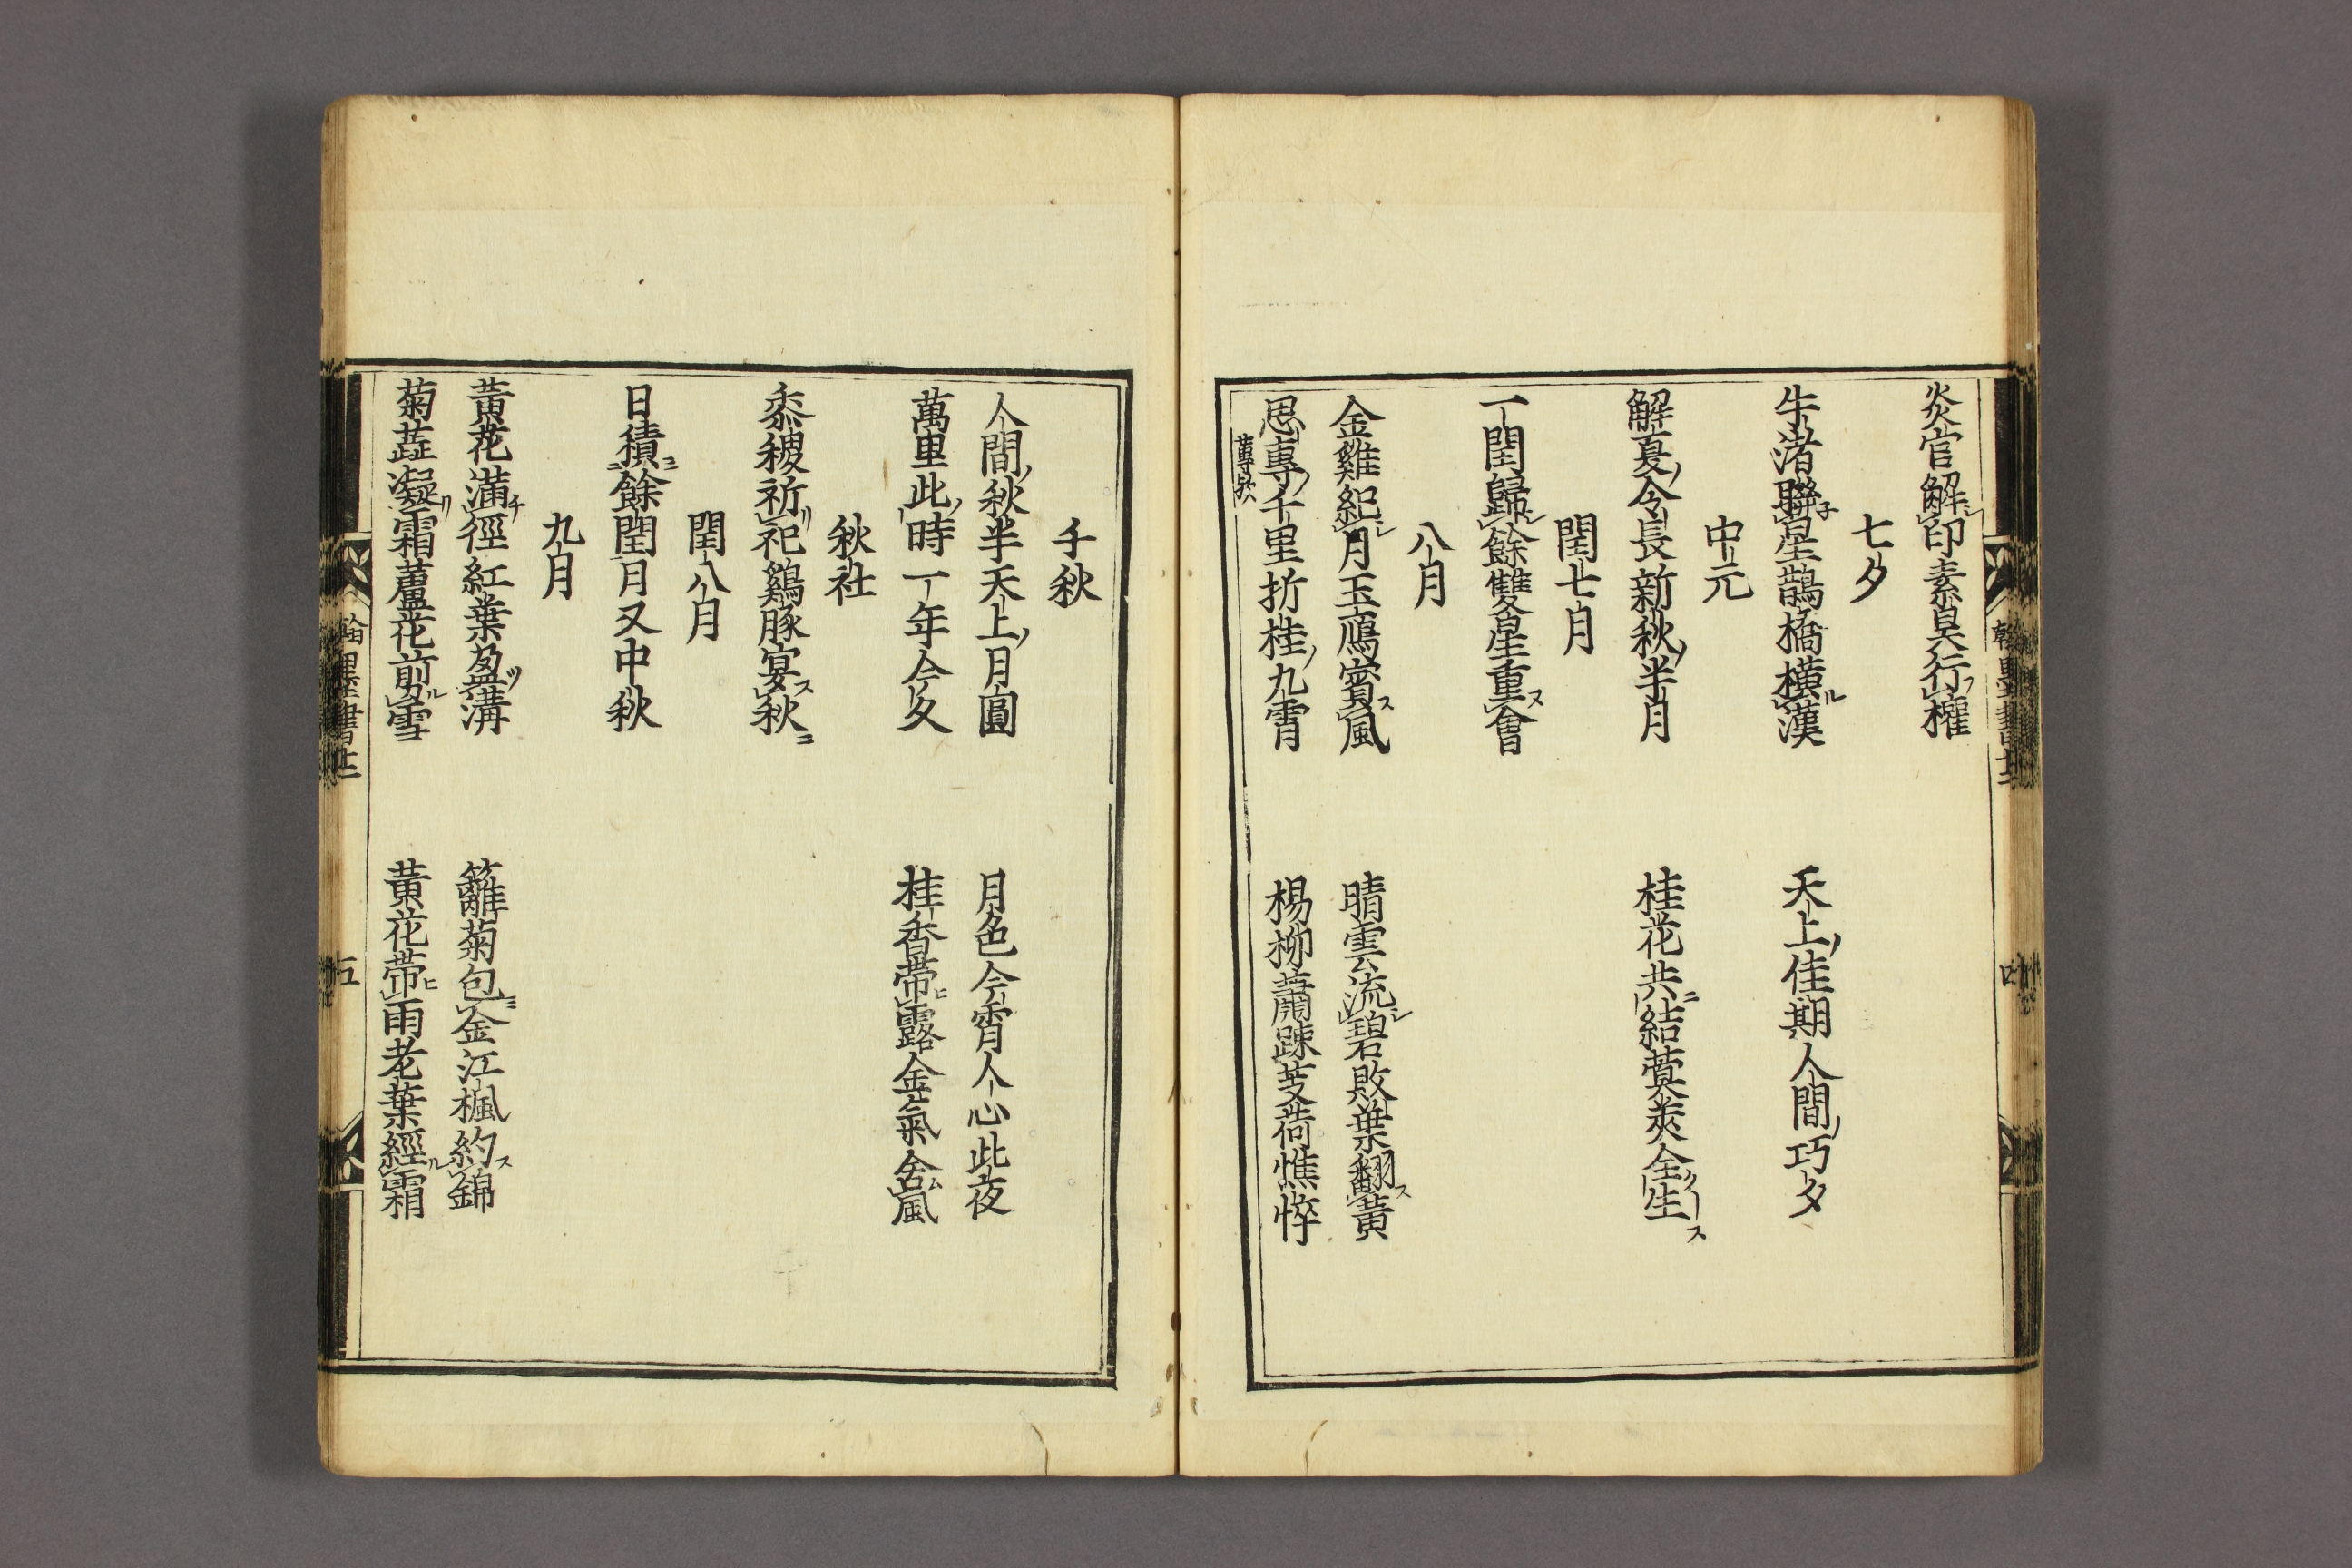 炎官解印素昊行權
七夕
牛渚聯星鵲橋橫漢　天上佳期人間巧夕
中元
解夏令長新秋半月　桂花共結蓂莢全生
閏七月
一閏歸餘雙星重會
八月
金雞紀月玉鴈賓風　晴雲流碧敗葉翻黃
思專千里折桂九霄　楊柳蕭踈芰荷憔悴
蓴歟
千秋
人間秋半天上月圓　月色今宵人心此夜
萬里此時一年今夕　桂香帶露金氣含風
秋社
黍稷祈祀鷄豚宴秋
閏八月
日積餘閏月又中秋
九月
黃花滿徑紅葉盈溝　籬菊包金江楓約錦
菊蕋凝霜蘆花剪雪　黃花帶雨老葉經霜
翰墨書十二
五